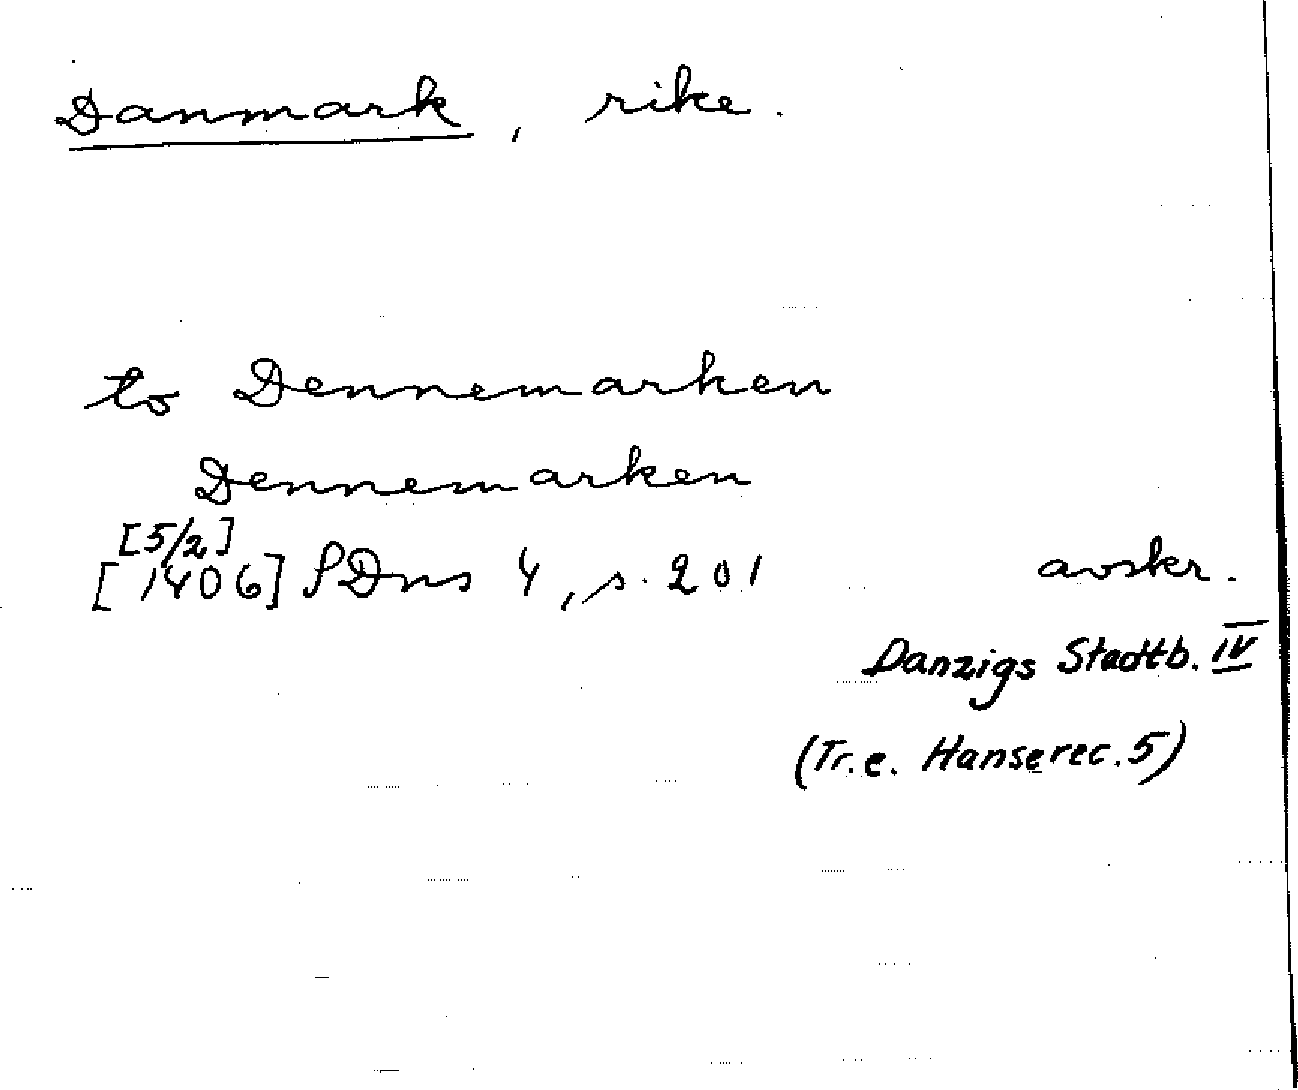 Danmark, rike.
to Dennemarken
Dennemarken
[5/2]
[1406] SDns 4, s. 201 avskr.
Danzigs Stadtb. IV
(Tr. e. Hanserec. 5)